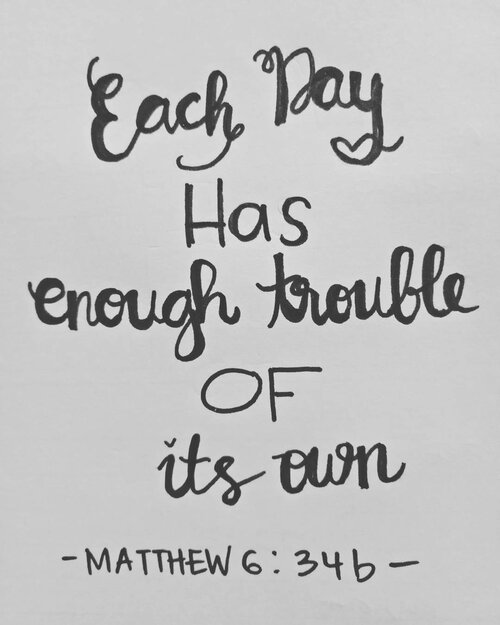 Each Day
Has
enough trouble
OF
its own
-MATTHEW 6:34b-